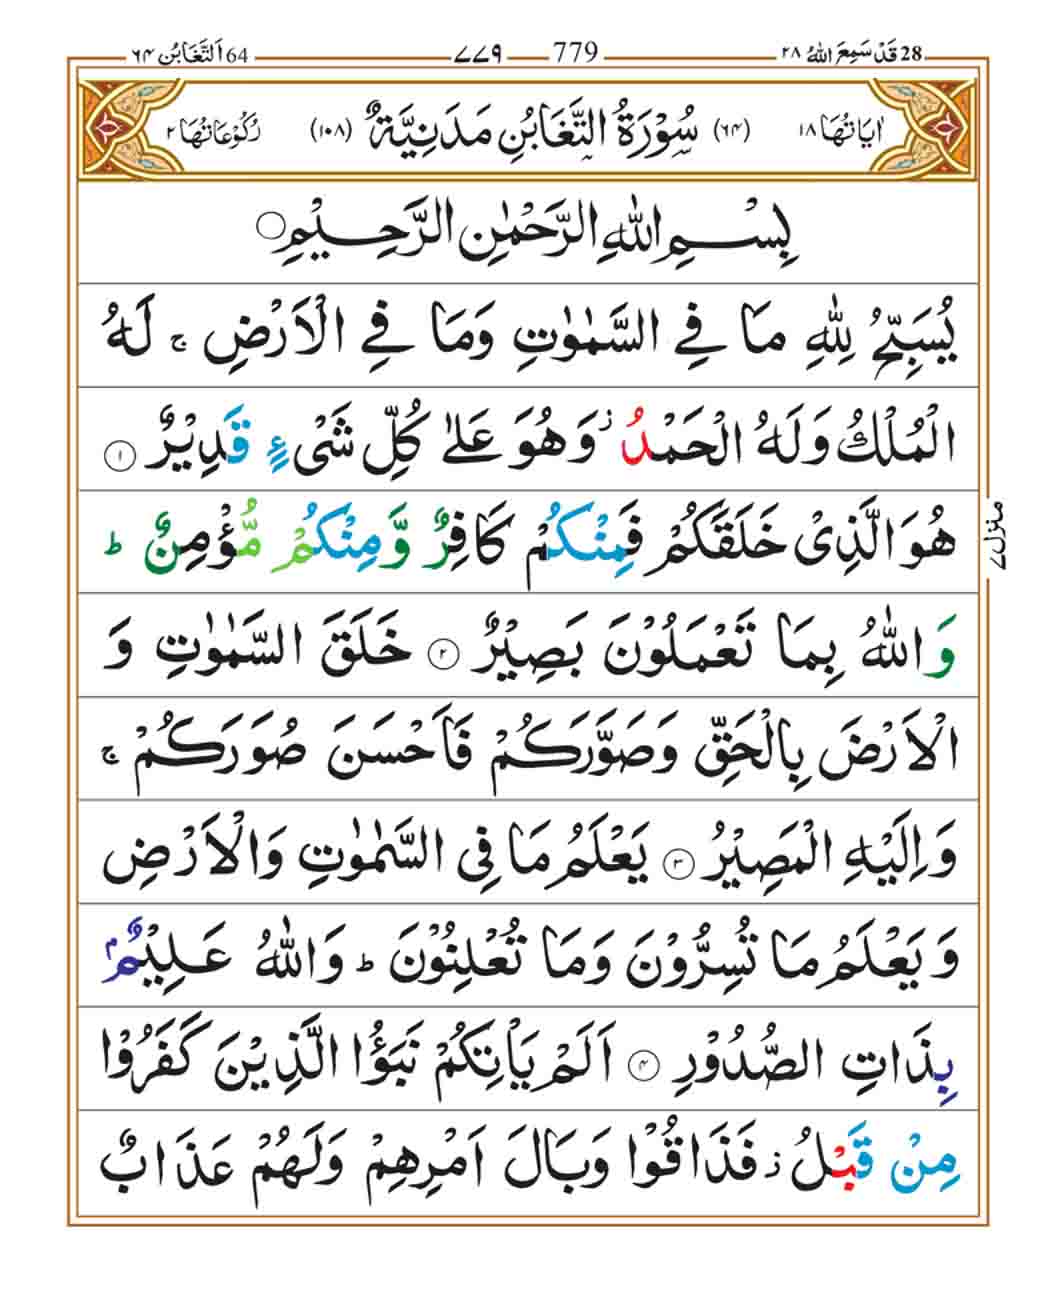 28 قَدْ سَمِعَ اللّٰهُ ٢٨ 779 ٧٧٩ 64 اَلتَّغَابُن ٦٤
اٰيَاتُهَا ١٨ (٦٤) سُوْرَةُ التَّغَابُنِ مَدَنِيَّةٌ (١٠٨) رُكُوْعَاتُهَا ٢
بِسْمِ اللّٰهِ الرَّحْمٰنِ الرَّحِيْمِ ۝
يُسَبِّحُ لِلّٰهِ مَا فِي السَّمٰوٰتِ وَمَا فِي الْاَرْضِ ۚ لَهُ
الْمُلْكُ وَلَهُ الْحَمْدُ ؗ وَهُوَ عَلٰى كُلِّ شَيْءٍ قَدِيْرٌ ١
هُوَ الَّذِيْ خَلَقَكُمْ فَمِنْكُمْ كَافِرٌ وَّمِنْكُمْ مُّؤْمِنٌ ؕ
وَاللّٰهُ بِمَا تَعْمَلُوْنَ بَصِيْرٌ ٢ خَلَقَ السَّمٰوٰتِ وَ
الْاَرْضَ بِالْحَقِّ وَصَوَّرَكُمْ فَاَحْسَنَ صُوَرَكُمْ ۚ
وَاِلَيْهِ الْمَصِيْرُ ٣ يَعْلَمُ مَا فِي السَّمٰوٰتِ وَالْاَرْضِ
وَيَعْلَمُ مَا تُسِرُّوْنَ وَمَا تُعْلِنُوْنَ ؕ وَاللّٰهُ عَلِيْمٌۢ
بِذَاتِ الصُّدُوْرِ ٤ اَلَمْ يَاْتِكُمْ نَبَؤُا الَّذِيْنَ كَفَرُوْا
مِنْ قَبْلُ ؗ فَذَاقُوْا وَبَالَ اَمْرِهِمْ وَلَهُمْ عَذَابٌ
منزل ٧